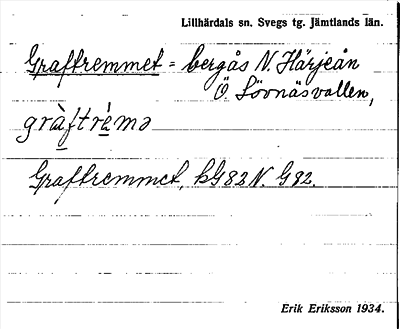 Lillhärdals sn. Svegs tg. Jämtlands län.
Graftremmet = bergås N. Härjeån
Ö Lövnäsvallen,
gràftrèmə
Graftremmet, hG82N. G82.
Erik Eriksson 1934.